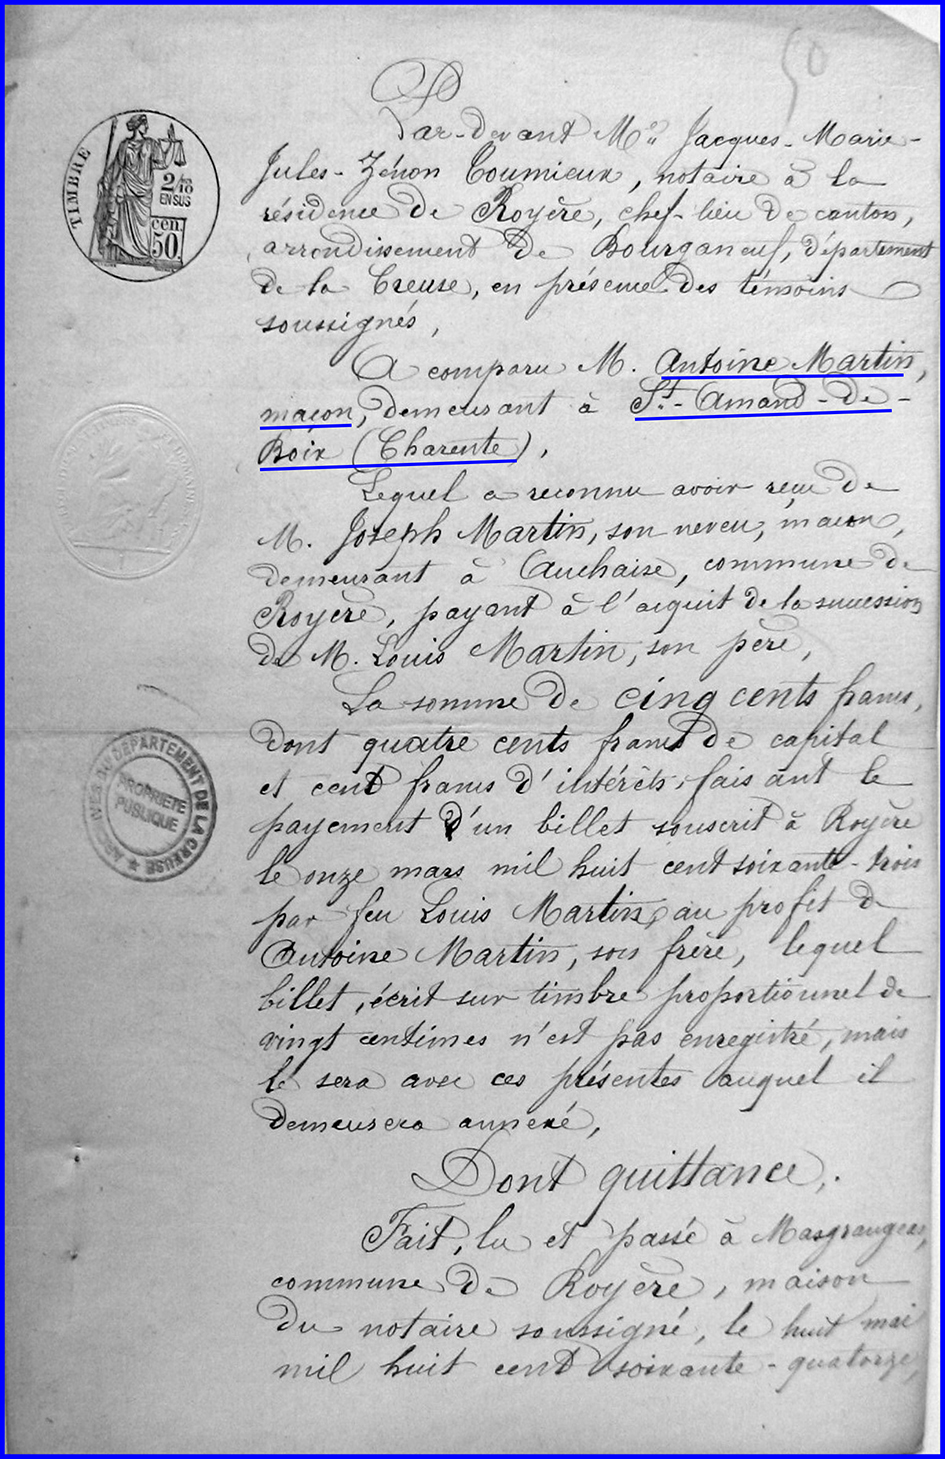 50
TIMBRE
2/10
EN SUS
cen.
50.
Par-devant Me. Jacques-Marie-
Jules-Zénon Coumieux, notaire à la
résidence de Royère, chef-lieu de canton,
arrondissement de Bourganeuf, département
de la Creuse, en présence des témoins
soussignés,
A comparu M. Antoine Martin,
maçon, demeurant à St.-Amand-de-
Boix (Charente),
Lequel a reconnu avoir reçu de
M. Joseph Martin, son neveu, maçon,
demeurant à Auchaise, commune de
Royère, payant à l'acquit de la succession
de M. Louis Martin, son père,
La somme de cinq cents francs,
dont quatre cents francs de capital
et cent francs d'intérêts, faisant le
payement d'un billet souscrit à Royère
le onze mars mil huit cent soixante-trois
par feu Louis Martin, au profit de
Antoine Martin, son frère, lequel
billet, écrit sur timbre proportionnel de
vingt centimes n'est pas enregistré, mais
le sera avec ces présentes auquel il
demeurera annexé,
Dont quittance.
Fait, lu et passé à Masgrangeas,
commune de Royère, maison
du notaire soussigné, le huit mai
mil huit cent soixante-quatorze,
ARCHIVES DU DÉPARTEMENT DE LA CREUSE
PROPRIÉTÉ
PUBLIQUE